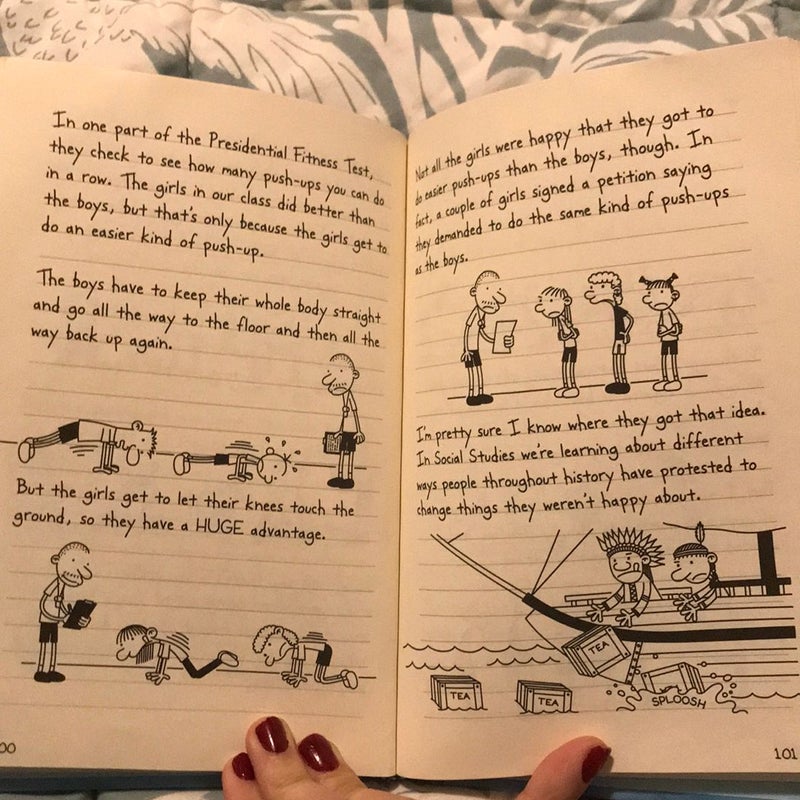 In one part of the Presidential Fitness Test,
they check to see how many push-ups you can do
in a row. The girls in our class did better than
the boys, but that's only because the girls get to
do an easier kind of push-up.
The boys have to keep their whole body straight
and go all the way to the floor and then all the
way back up again.
But the girls get to let their knees touch the
ground, so they have a HUGE advantage.
00
Not all the girls were happy that they got to
do easier push-ups than the boys, though. In
fact, a couple of girls signed a petition saying
they demanded to do the same kind of push-ups
as the boys.
I'm pretty sure I know where they got that idea.
In Social Studies we're learning about different
ways people throughout history have protested to
change things they weren't happy about.
TEA
TEA
TEA
SPLOOSH
101